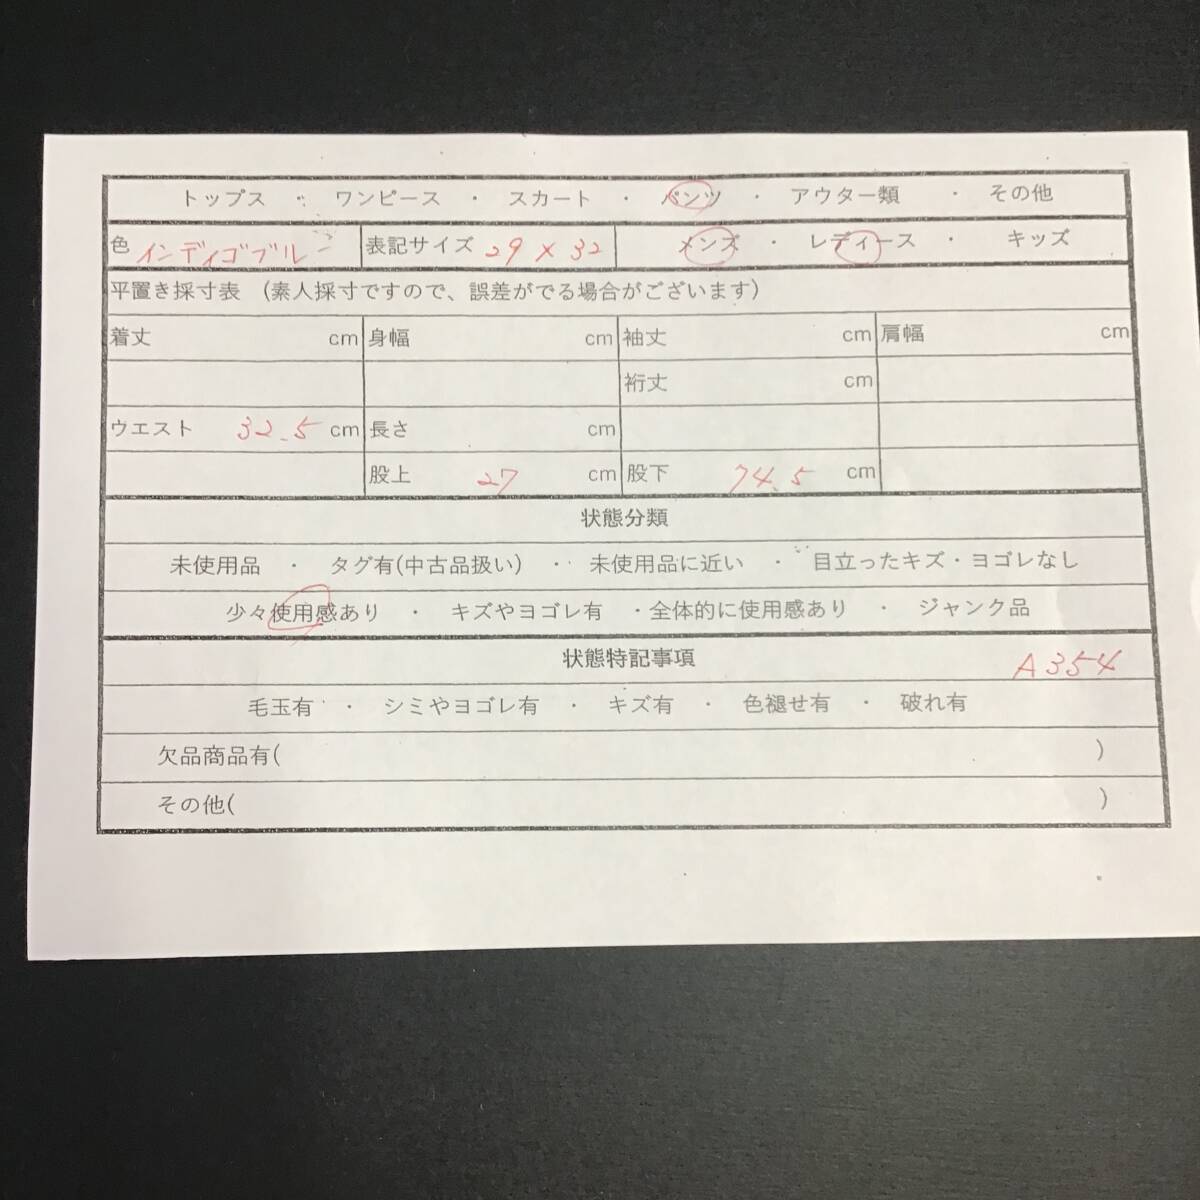 トップス ・ ワンピース ・ スカート ・ パンツ ・ アウター類 ・ その他
色 インディゴブルー 表記サイズ 29×32 メンズ ・ レディース ・ キッズ
平置き採寸表 (素人採寸ですので、誤差がでる場合がございます)
着丈 cm 身幅 cm 袖丈 cm 肩幅 cm
裄丈 cm
ウエスト 32.5 cm 長さ cm
股上 27 cm 股下 74.5 cm
状態分類
未使用品 ・ タグ有(中古品扱い) ・ 未使用品に近い ・ 目立ったキズ・ヨゴレなし
少々使用感あり ・ キズやヨゴレ有 ・全体的に使用感あり ・ ジャンク品
状態特記事項 A354
毛玉有 ・ シミやヨゴレ有 ・ キズ有 ・ 色褪せ有 ・ 破れ有
欠品商品有( )
その他( )